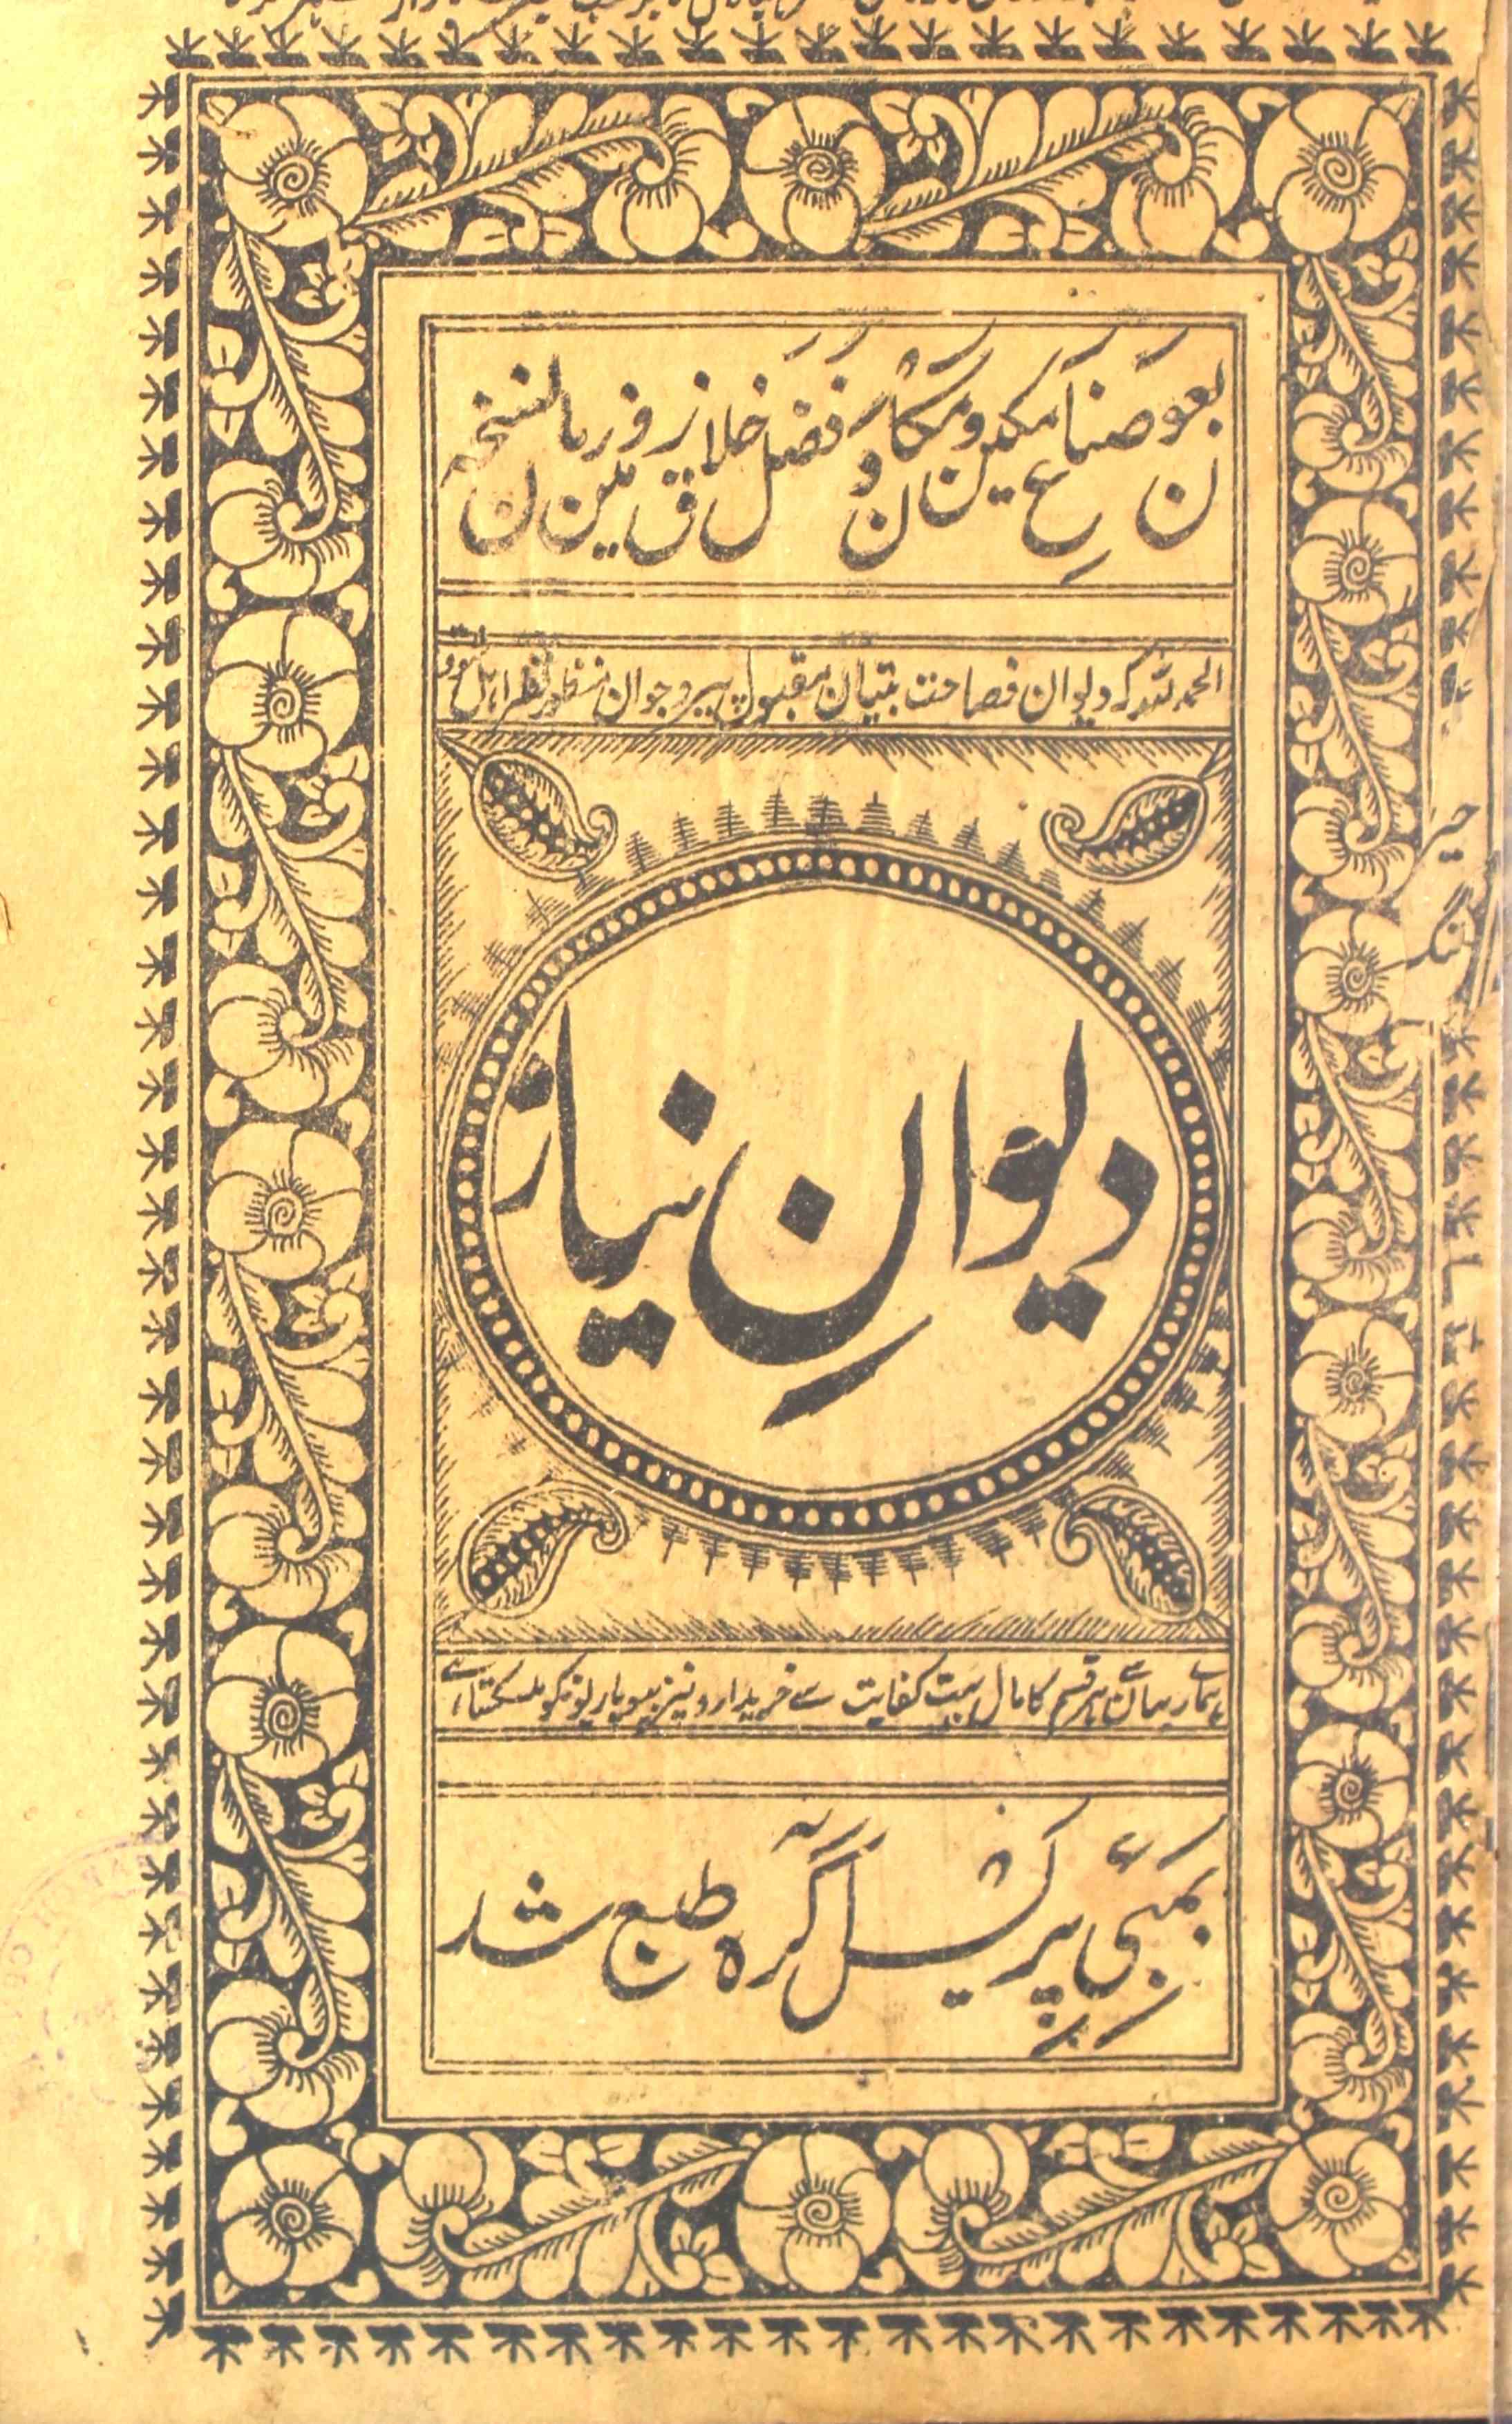 بعون صناع مکین و مکان و فضل خلاق زمین و زمان نسخہ
الحمد للہ کہ دیوان فصاحت بتیان مقبول پیر و جوان منظور نظر اہل
دیوانِ نیاز
ہمارے یہاں سے ہر قسم کا مال بہت کفایت سے خریدار و نیز بیوپاریونکو ملسکتا ہے
بمبئی پریس آگرہ طبع شد